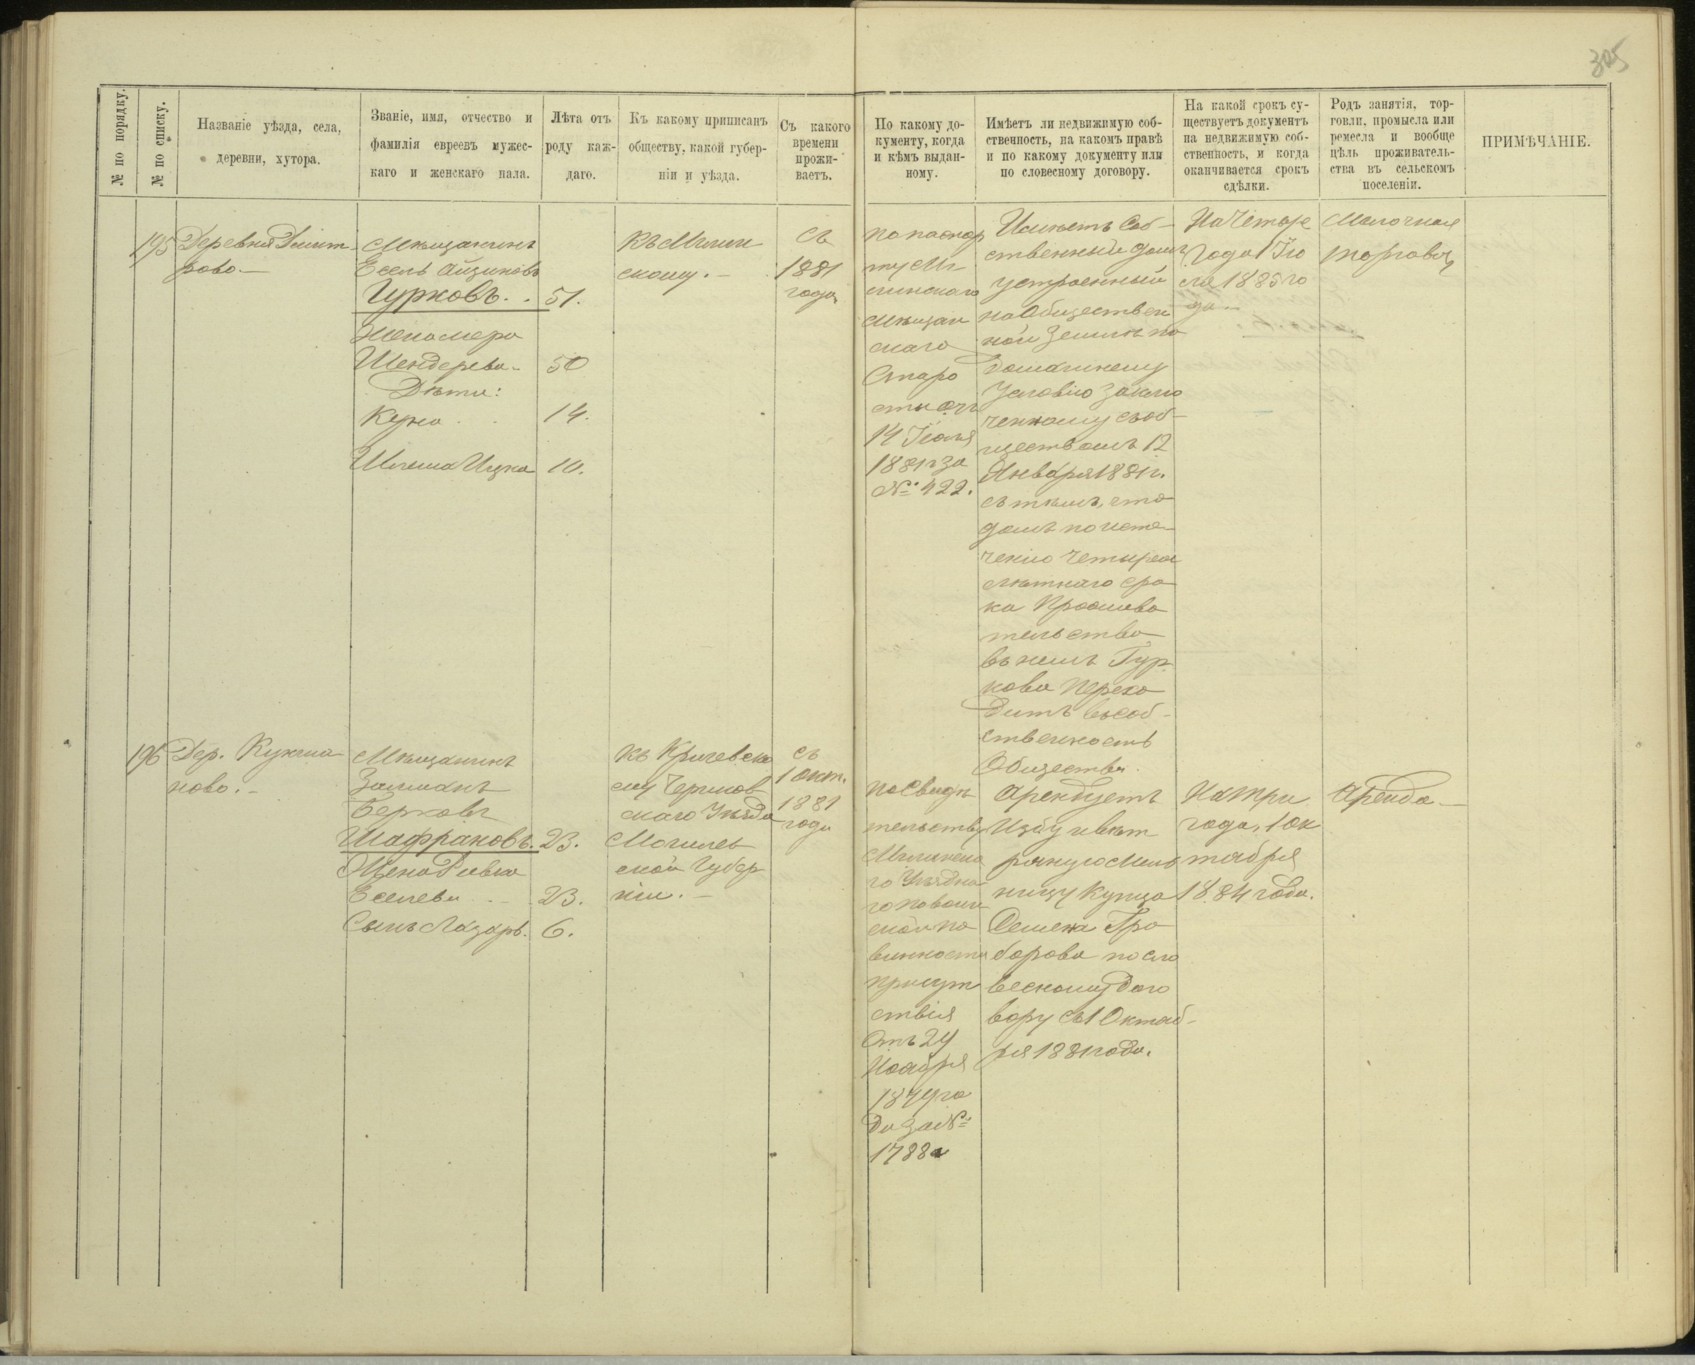 305
№ по порядку.
№ по списку.
Названіе уѣзда, села,
деревни, хутора.
Званіе, имя, отчество и
фамилія евреевъ мужес-
каго и женскаго пала.
Лѣта отъ
роду каж-
даго.
Къ какому приписанъ
обществу, какой губер-
ніи и уѣзда.
Съ какого
времени
прожи-
ваетъ.
По какому до-
кументу, когда
и кѣмъ выдан-
ному.
Имѣетъ ли недвижимую соб-
ственность, на какомъ правѣ
и по какому документу или
по словесному договору.
На какой срокъ су-
ществуетъ документъ
на недвижимую соб-
ственность, и когда
оканчивается срокъ
сдѣлки.
Родъ занятія, тор-
говли, промысла или
ремесла и вообще
цѣль проживатель-
ства въ сельскомъ
поселеніи.
ПРИМѢЧАНІЕ.
195
Деревня
рово.
Мѣщанинъ
Есель Айзиковъ
Гурковъ. . 51.
Жена Мера
Шендерева. 50
Дѣти:
14.
10.
Къ Мглин
скому.
съ
1881
года
по паспор
ту Мг
линскаго
мѣщан
скаго
Старо
сты отъ
14 Іюля
1881 г за
№ 422.
Имѣетъ соб-
ственный домъ
устроенный
на Обществен
ной землѣ по
домашнему
условію заклю
ченному съ об-
ществомъ 12
Января 1881 г.
съ тѣмъ, что
домъ по исте-
ченію четырех
лѣтняго сро
ка прожива
тельства
въ немъ Гур
кова перехо
дитъ въ соб-
ственность
Общества.
На Четыре
года 1 Ію
ля 1885 го
да.
Мелочная
торговля
196
Дер.
ново.
Мѣщанинъ
Залманъ
Берковъ
Шафрановъ. 23.
Жена Ривка
Еселева 23.
Сынъ Лазарь. 6.
къ Кричевско
му Чериков
скаго Уѣзда
Могилев
ской Губер
ніи.
съ
1 Окт.
1881
года
по Свидѣ
тельству
Мглинска
го Уѣздна
го по воин
ской по
винности
присут
ствія
отъ 24
Ноября
1879 го
да за №
1788
Арендуетъ
Избу и вѣт
ряную мель
ницу купца
Гра
борова по сло
весному дого
вору съ 1 Октяб-
ря 1881 года.
На три
года, 1 Ок
тября
1884 года.
Аренда.